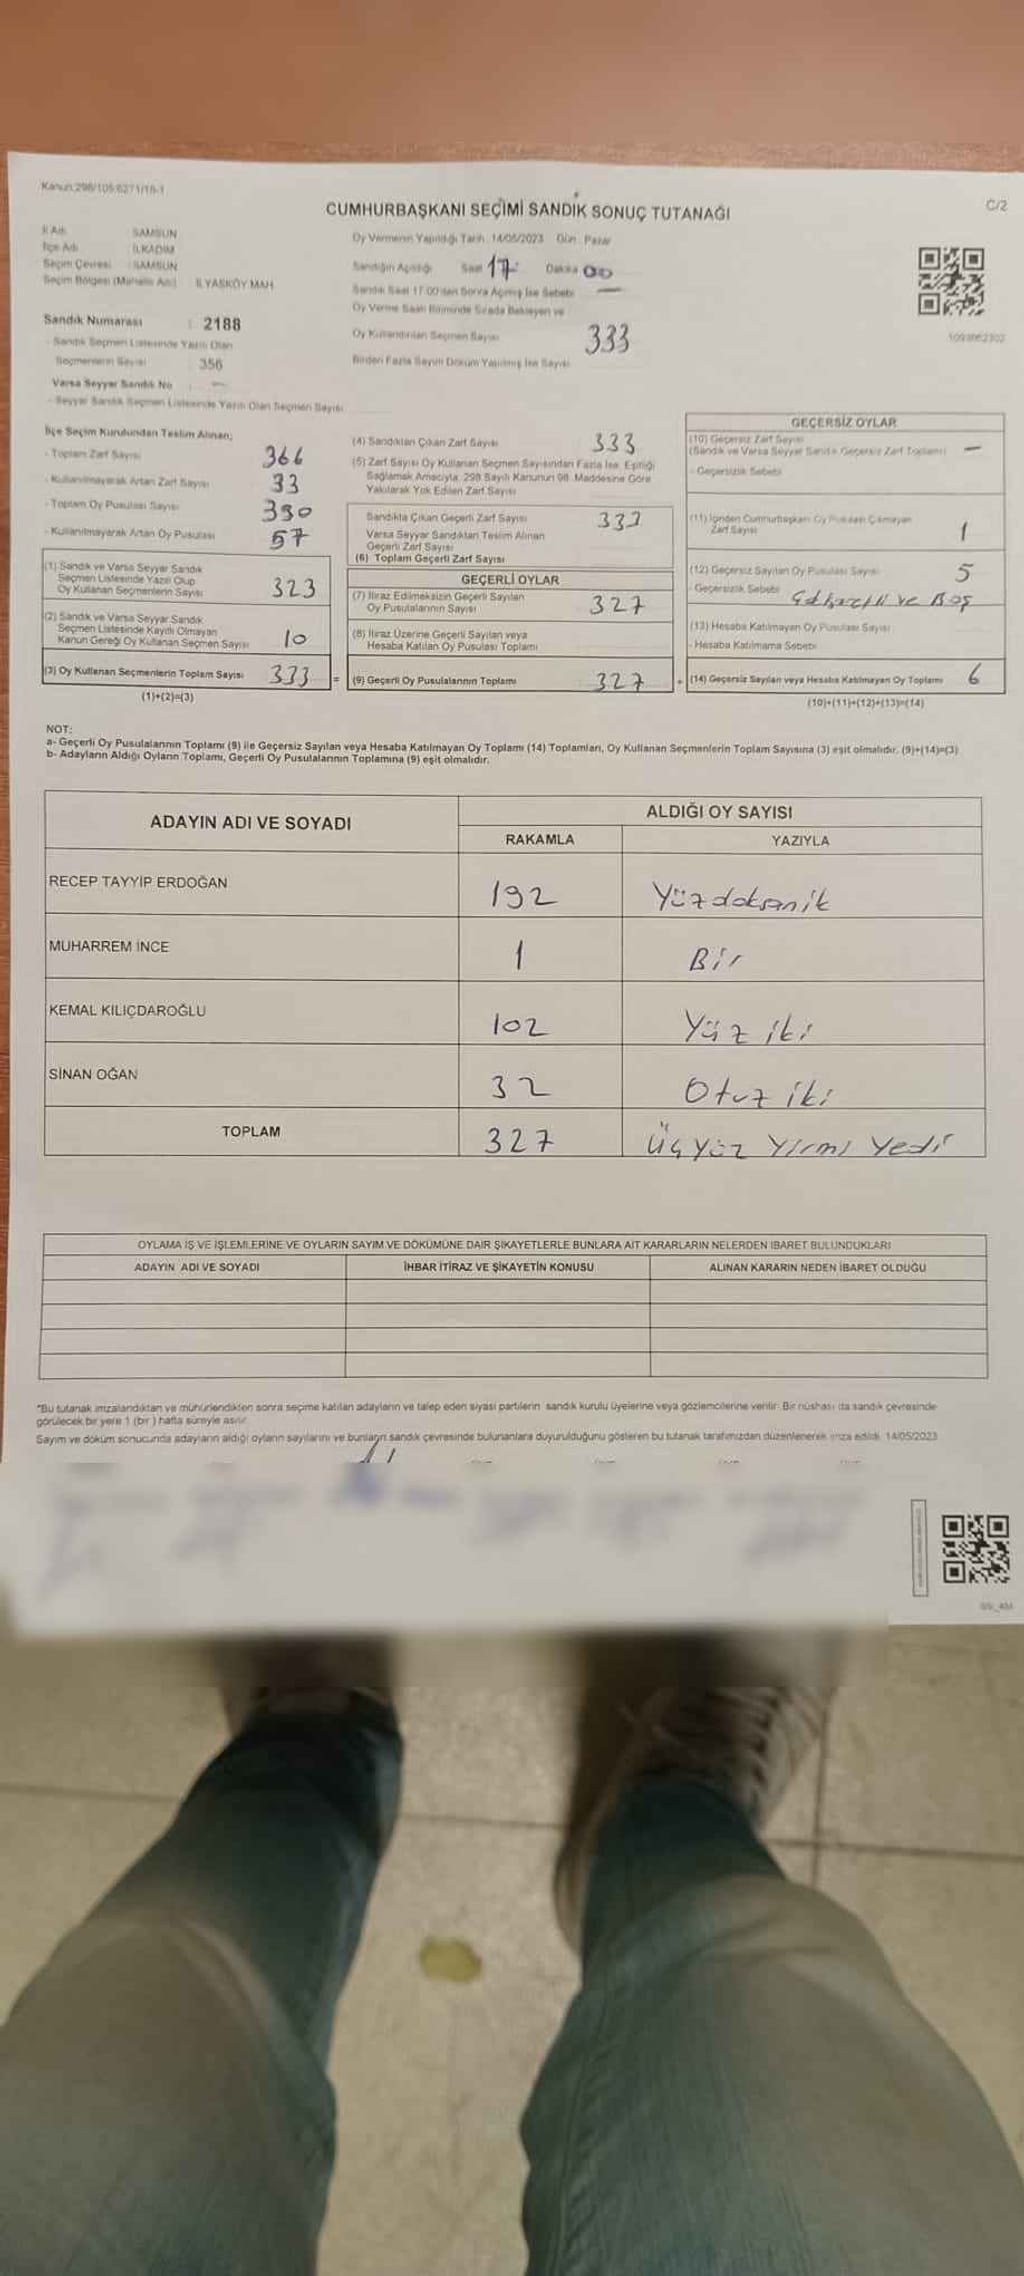 Kanun:298/105;6271/18-1
CUMHURBAŞKANI SEÇİMİ SANDIK SONUÇ TUTANAĞI
C/2
İl Adı SAMSUN
İlçe Adı İLKADIM
Seçim Çevresi SAMSUN
Seçim Bölgesi (Mahalle Adı) İLYASKÖY MAH.
Oy Vermenin Yapıldığı Tarih : 14/05/2023 Gün : Pazar
Sandığın Açıldığı Saat 17 Dakika 00
Sandık Saat 17:00'den Sonra Açılmış İse Sebebi —
Oy Verme Saati Bitiminde Sırada Bekleyen ve
Oy Kullandırılan Seçmen Sayısı 333
Birden Fazla Sayım Döküm Yapılmış İse Sayısı
Sandık Numarası : 2188
- Sandık Seçmen Listesinde Yazılı Olan
Seçmenlerin Sayısı : 356
Varsa Seyyar Sandık No : —
- Seyyar Sandık Seçmen Listesinde Yazılı Olan Seçmen Sayısı
İlçe Seçim Kurulundan Teslim Alınan;
- Toplam Zarf Sayısı 366
- Kullanılmayarak Artan Zarf Sayısı 33
- Toplam Oy Pusulası Sayısı 390
- Kullanılmayarak Artan Oy Pusulası 57
(1) Sandık ve Varsa Seyyar Sandık
Seçmen Listesinde Yazılı Olup
Oy Kullanan Seçmenlerin Sayısı 323
(2) Sandık ve Varsa Seyyar Sandık
Seçmen Listesinde Kayıtlı Olmayan
Kanun Gereği Oy Kullanan Seçmen Sayısı 10
(3) Oy Kullanan Seçmenlerin Toplam Sayısı 333 =
(1)+(2)=(3)
(4) Sandıktan Çıkan Zarf Sayısı 333
(5) Zarf Sayısı Oy Kullanan Seçmen Sayısından Fazla İse, Eşitliği
Sağlamak Amacıyla; 298 Sayılı Kanunun 98. Maddesine Göre
Yakılarak Yok Edilen Zarf Sayısı
Sandıkta Çıkan Geçerli Zarf Sayısı 333
Varsa Seyyar Sandıktan Teslim Alınan
Geçerli Zarf Sayısı
(6) Toplam Geçerli Zarf Sayısı
GEÇERLİ OYLAR
(7) İtiraz Edilmeksizin Geçerli Sayılan
Oy Pusulalarının Sayısı 327
(8) İtiraz Üzerine Geçerli Sayılan veya
Hesaba Katılan Oy Pusulası Toplamı
(9) Geçerli Oy Pusulalarının Toplamı 327 +
GEÇERSİZ OYLAR
(10) Geçersiz Zarf Sayısı
(Sandık ve Varsa Seyyar Sandık Geçersiz Zarf Toplamı) —
- Geçersizlik Sebebi
(11) İçinden Cumhurbaşkanı Oy Pusulası Çıkmayan
Zarf Sayısı 1
(12) Geçersiz Sayılan Oy Pusulası Sayısı 5
- Geçersizlik Sebebi ve Boş
(13) Hesaba Katılmayan Oy Pusulası Sayısı
- Hesaba Katılmama Sebebi
(14) Geçersiz Sayılan veya Hesaba Katılmayan Oy Toplamı 6
(10)+(11)+(12)+(13)=(14)
NOT:
a- Geçerli Oy Pusulalarının Toplamı (9) ile Geçersiz Sayılan veya Hesaba Katılmayan Oy Toplamı (14) Toplamları, Oy Kullanan Seçmenlerin Toplam Sayısına (3) eşit olmalıdır. (9)+(14)=(3)
b- Adayların Aldığı Oyların Toplamı, Geçerli Oy Pusulalarının Toplamına (9) eşit olmalıdır.
ADAYIN ADI VE SOYADI ALDIĞI OY SAYISI
RAKAMLA YAZIYLA
RECEP TAYYİP ERDOĞAN 192 Yüzdoksanik
MUHARREM İNCE 1 Bir
KEMAL KILIÇDAROĞLU 102 Yüz iki
SİNAN OĞAN 32 Otuz iki
TOPLAM 327 Üçyüz Yirmi Yedi
OYLAMA İŞ VE İŞLEMLERİNE VE OYLARIN SAYIM VE DÖKÜMÜNE DAİR ŞİKAYETLERLE BUNLARA AİT KARARLARIN NELERDEN İBARET BULUNDUKLARI
ADAYIN ADI VE SOYADI İHBAR İTİRAZ VE ŞİKAYETİN KONUSU ALINAN KARARIN NEDEN İBARET OLDUĞU
*Bu tutanak imzalandıktan ve mühürlendikten sonra seçime katılan adayların ve talep eden siyasi partilerin sandık kurulu üyelerine veya gözlemcilerine verilir. Bir nüshası da sandık çevresinde
görülecek bir yere 1 (bir ) hafta süreyle asılır.
Sayım ve döküm sonucunda adayların aldığı oyların sayılarını ve bunların sandık çevresinde bulunanlara duyurulduğunu gösteren bu tutanak tarafımızdan düzenlenerek imza edildi. 14/05/2023